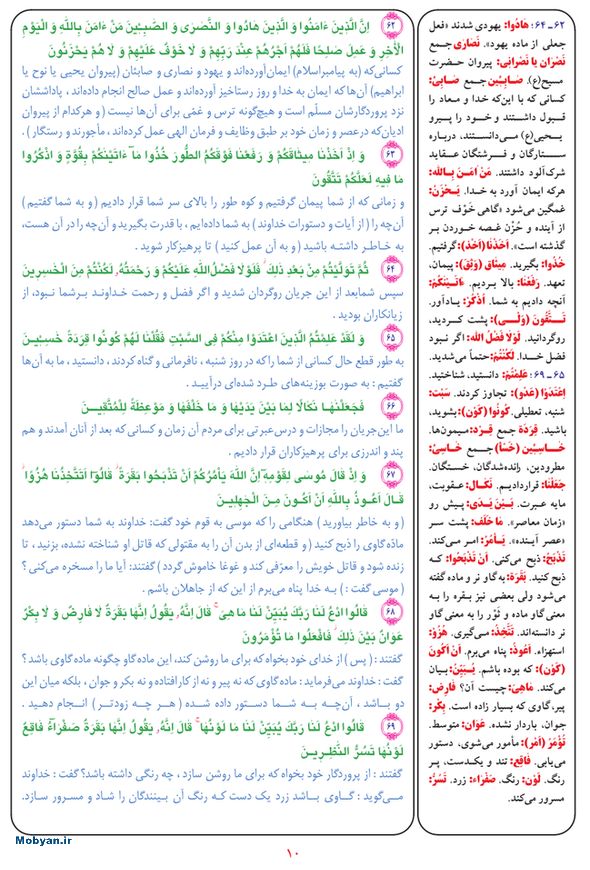 ۶۲ إِنَّ الَّذِينَ ءَامَنُوا وَ الَّذِينَ هَادُوا وَ النَّصَٰرَىٰ وَ الصَّٰبِـِٔينَ مَنْ ءَامَنَ بِاللَّهِ وَ الْيَوْمِ
الْأَخِرِ وَ عَمِلَ صَٰلِحًا فَلَهُمْ أَجْرُهُمْ عِندَ رَبِّهِمْ وَ لَا خَوْفٌ عَلَيْهِمْ وَ لَا هُمْ يَحْزَنُونَ
کسانی‌که (به پیامبراسلام) ایمان‌آورده‌اند و یهود و نصاری و صابئان (پیروان یحیی یا نوح یا
ابراهیم) آن‌ها که ایمان به خدا و روز رستاخیز آورده‌اند و عمل صالح انجام داده‌اند ، پاداششان
نزد پروردگارشان مسلّم است و هیچ‌گونه ترس و غمّی برای آن‌ها نیست ( و هرکدام از پیروان
ادیان‌که درعصر و زمان خود بر طبق وظایف و فرمان الهی عمل کرده‌اند ، مأجورند و رستگار ) .
۶۳ وَ إِذْ أَخَذْنَا مِيثَاقَكُمْ وَ رَفَعْنَا فَوْقَكُمُ الطُّورَ خُذُوا مَا ءَاتَيْنَٰكُمْ بِقُوَّةٍ وَ اذْكُرُوا
مَا فِيهِ لَعَلَّكُمْ تَتَّقُونَ
و زمانی که از شما پیمان گرفتیم و کوه طور را بالای سر شما قرار دادیم ( و به شما گفتیم )
آن‌چه را ( از آیات و دستورات خداوند ) به شما داده‌ایم ، با قدرت بگیرید و آن‌چه را در آن هست،
به خـاطر داشتـه باشید ( و به آن عمل کنید ) تا پرهیزکار شوید .
۶۴ ثُمَّ تَوَلَّيْتُمْ مِنْ بَعْدِ ذَٰلِكَ فَلَوْلَا فَضْلُ اللَّهِ عَلَيْكُمْ وَ رَحْمَتُهُ لَكُنْتُمْ مِنَ الْخَٰسِرِينَ
سپس شمابعد از این جریان روگردان شدید و اگر فضل و رحمت خداوند برشما نبود، از
زیانکاران بودید .
۶۵ وَ لَقَدْ عَلِمْتُمُ الَّذِينَ اعْتَدَوْا مِنْكُمْ فِى السَّبْتِ فَقُلْنَا لَهُمْ كُونُوا قِرَدَةً خَٰسِـِٔينَ
به طور قطع حال کسانی از شما را که در روز شنبه ، نافرمانی و گناه کردند ، دانستید ، ما به آن‌ها
گفتیم : به صورت بوزینه‌های طـرد شده‌ای درآییـد .
۶۶ فَجَعَلْنَٰهَا نَكَالًا لِمَا بَيْنَ يَدَيْهَا وَ مَا خَلْفَهَا وَ مَوْعِظَةً لِلْمُتَّقِينَ
ما این‌جریان را مجازات و درس‌عبرتی برای مردم آن زمان و کسانی که بعد از آنان آمدند و هم
پند و اندرزی برای پرهیزکاران قرار دادیم .
۶۷ وَ إِذْ قَالَ مُوسَىٰ لِقَوْمِهِ إِنَّ اللَّهَ يَأْمُرُكُمْ أَنْ تَذْبَحُوا بَقَرَةً قَالُوا أَتَتَّخِذُنَا هُزُوًا
قَالَ أَعُوذُ بِاللَّهِ أَنْ أَكُونَ مِنَ الْجَٰهِلِينَ
( و به خاطر بیاورید ) هنگامی را که موسی به قوم خود گفت: خداوند به شما دستور می‌دهد
مادّه‌گاوی را ذبح کنید ( و قطعه‌ای از بدن آن را به مقتولی که قاتل او شناخته نشده، بزنید ، تا
زنده شود و قاتل خویش را معرّفی کند و غوغا خاموش گردد ) گفتند: آیا ما را مسخره می‌کنی ؟
( موسی گفت : ) بـه خـدا پناه می‌برم از این که از جاهلان باشم .
۶۸ قَالُوا ادْعُ لَنَا رَبَّكَ يُبَيِّنْ لَنَا مَا هِىَ قَالَ إِنَّهُ يَقُولُ إِنَّهَا بَقَرَةٌ لَا فَارِضٌ وَ لَا بِكْرٌ
عَوَانٌ بَيْنَ ذَٰلِكَ فَافْعَلُوا مَا تُؤْمَرُونَ
گفتند : ( پس ) از خدای خود بخواه که برای ما روشن کند، این ماده‌گاو چگونه ماده‌گاوی باشد ؟
گفت : خداوند می‌فرماید : ماده‌گاوی که نه پیر و نه از کارافتاده و نه بکر و جوان ، بلکه میان این
دو بـاشد ، آن‌چـه بـه شمـا دستور داده شـده ( هـر چـه زودتـر ) انجام دهیـد .
۶۹ قَالُوا ادْعُ لَنَا رَبَّكَ يُبَيِّنْ لَنَا مَا لَوْنُهَا قَالَ إِنَّهُ يَقُولُ إِنَّهَا بَقَرَةٌ صَفْرَاءُ فَاقِعٌ
لَوْنُهَا تَسُرُّ النَّٰظِرِينَ
گفتند : از پروردگار خود بخواه که برای ما روشن سازد ، چه رنگی داشته باشد؟ گفت : خداوند
می‌گوید : گـاوی بـاشد زرد یک دسـت کـه رنگ آن بـیننـدگان را شـاد و مسـرور سازد.
۶۲ ـ ۶۴: هَادُوا: یهودی شدند «فعل
جعلی از ماده یهود». نَصَارَی جمع
نَصْرَان یا نَصْرَانِی: پیروان حضرت
مسیح(ع). صَابِئِینَ جمع صَابِئ:
کسانی که با این‌که خدا و معاد را
قبول داشتند و خود را پیرو
یحیی(ع) می‌دانستند، درباره
ستارگان و فرشتگان عقاید
شرک‌آلود داشتند. مَنْ آمَنَ بِاللَّه:
هرکه ایمان آورد به خدا. یَحْزَنُ:
غمگین می‌شود «گاهی خَوْف ترس
از آینده و حُزْن غصه خوردن بر
گذشته است». أَخَذْنَا (أَخَذَ): گرفتیم.
خُذُوا: بگیرید. مِیثَاق (وَثِقَ): پیمان،
تعهد. رَفَعْنَا: بالا بردیم. ءَاتَیْنَٰکُمْ:
آنچه دادیم به شما. اُذْکُرْ: یادآور.
تَتَّقُونَ (وَلَّی): پشت کردید،
روگردانید. لَوْلَا فَضْلُ اللَّه: اگر نبود
فضل خدا. لَکُنْتُمْ: حتماً می‌شدید.
۶۵ ـ ۶۹: عَلِمْتُمْ: دانستید، شناختید.
اِعْتَدَوْا (عَدْو): تجاوز کردند. سَبْت:
شنبه، تعطیلی. کُونُوا (کَوْن): بشوید،
باشید. قِرَدَة جمع قِرْد: میمون‌ها.
خَاسِئِینَ (خَسَأ) جمع خَاسِئ:
مطرودین، رانده‌شدگان، خستگان.
جَعَلْنَا: قراردادیم. نَکَال: عقوبت،
مایه عبرت. بَیْنَ یَدَیْ: پیش رو
«زمان معاصر». مَا خَلْفَ: پشت سر
«عصر آینده». یَأْمُرُ: امر می‌کند.
تَذْبَحُ: ذبح می‌کنی. أَنْ تَذْبَحُوا: که
ذبح کنید. بَقَرَة: به‌گاو نر و ماده گفته
می‌شود ولی بعضی نیز بقره را به
معنی گاو ماده و ثَوْر را به معنی گاو
نر دانسته‌اند. تَتَّخِذُ: می‌گیری. هُزُؤ:
استهزاء. أَعُوذُ: پناه می‌برم. أَنْ أَکُونَ
(کَوْن): که بوده باشم. یُبَیِّنْ: بیان
می‌کند. مَاهِیَ: چیست آن؟ فَارِض:
پیر، گاوی که بسیار زاده است. بِکْر:
جوان، باردار نشده. عَوَان: متوسط.
تُؤْمَرُ (أَمَرَ): مأمور می‌شوی، دستور
می‌یابی. فَاقِع: تند و یکدست، پر
رنگ. لَوْن: رنگ. صَفْرَاء: زرد. تَسُرُّ:
مسرور می‌کند.
Mobyan.ir
۱۰